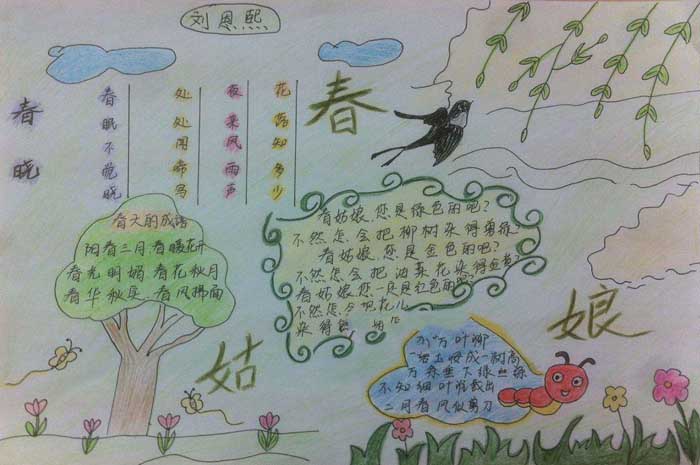 刘恩熙
春晓
春眠不觉晓
处处闻啼鸟
夜来风雨声
花落知多少
春
姑
娘
春天的成语
阳春三月、春暖花开
春光明媚 春花秋月
春华秋实、春风拂面
春姑娘,您是绿色的吧?
不然怎会把柳树染得
春姑娘,您是金色的吧?
不然怎会把油菜花染得金黄
春姑娘您一是红色的吧
不然怎会把花儿
染得
碧玉妆成一树高
万条垂下绿丝绦
不知细叶谁裁出
二月春风似剪刀